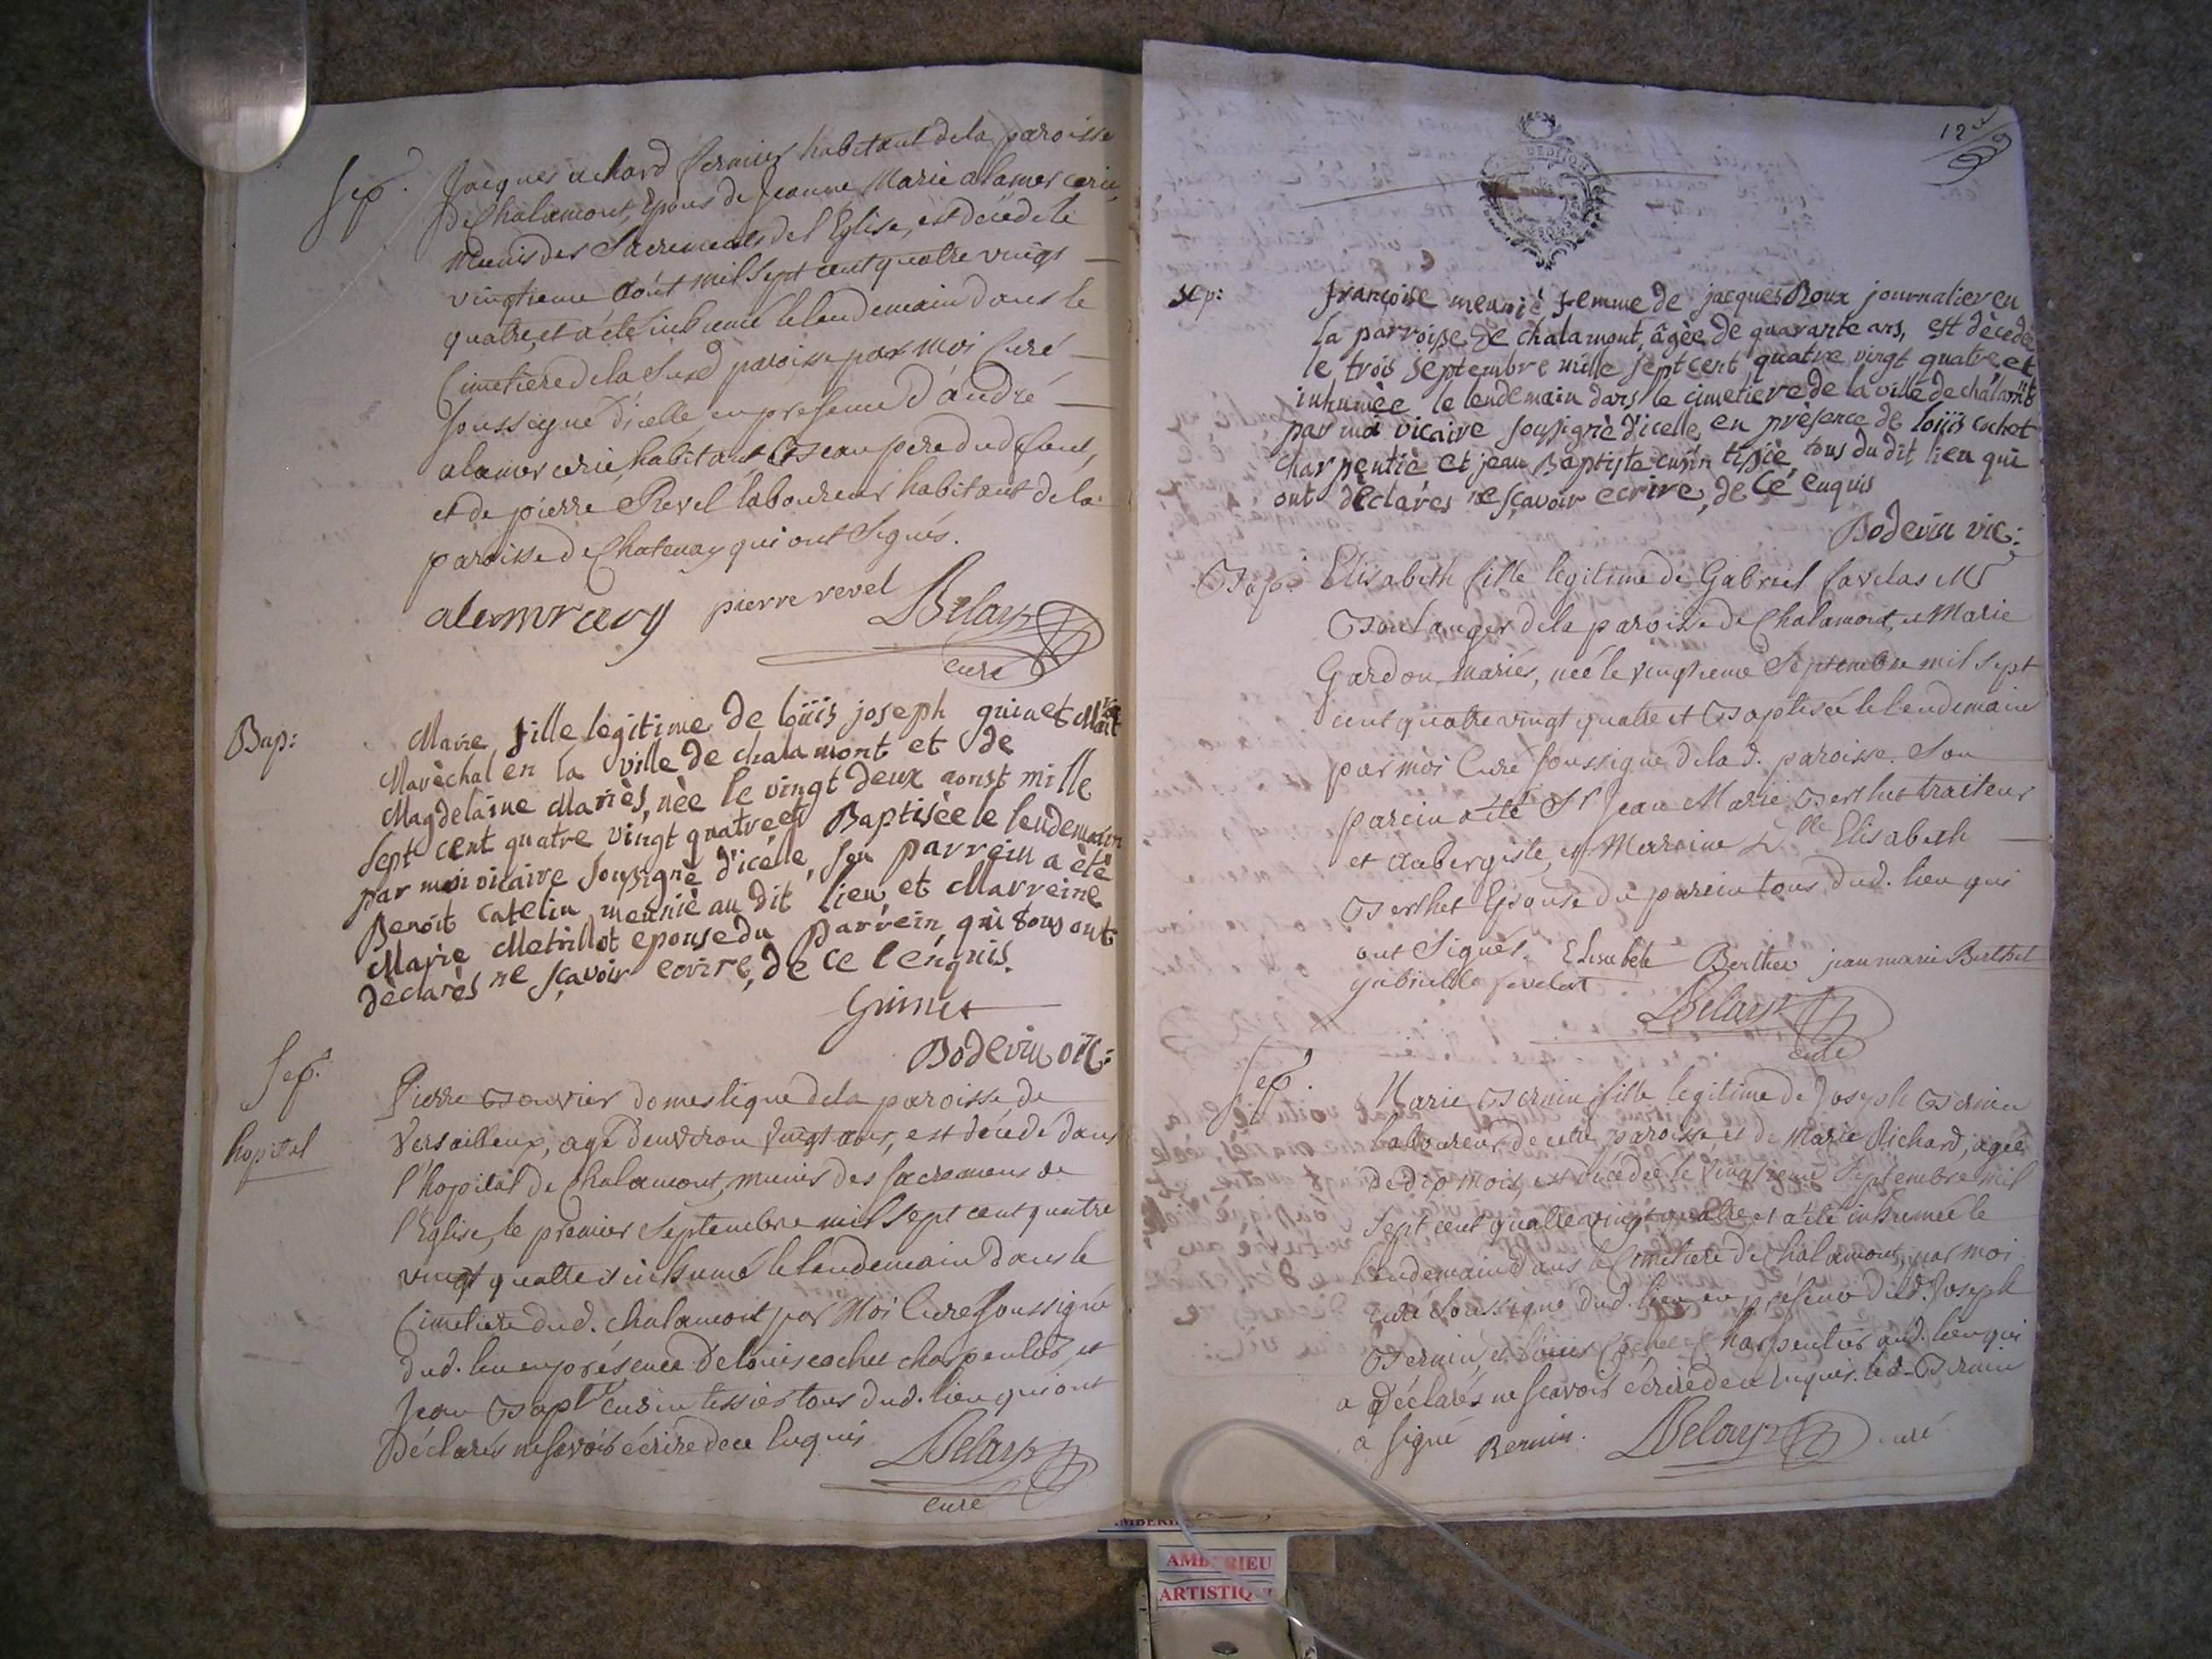 Sep. Jacques achard fermier habitant de la paroisse
de Chalamont, Epoux de Jeanne Marie alamercerie,
Munis des Sacrements de l'Eglise, est décédé le
vingtieme août mil Sept cent quatre vingt
quatre, et a été inhumé le lendemain dans le
Cimetiere de la Susd paroisse par Moi Curé
Soussigné d'icelle, en presence d'andré
alamercerie, habitant Beaupere du defunt,
et de pierre Revel laboureur habitant de la
paroisse de Chatenay qui ont Signés.
pierre revel Belay
curé
Bap: Marie fille legitime de loüis joseph guinet M
Marèchal en la ville de chalamont et de
Magdelaine Mariès, nèe le vingt deux aoust mille
Sept cent quatre vingt quatre et Baptisèe le lendemain
par moi vicaire Soussignè d'icelle, Son parrein a ètè
Benoit Catelin meuniè au dit lieu, et Marreine
Marie Metrillot epouse du parrein, qui tous ont
dèclarès ne sçavoir ecrire, de ce l'enquis.
Guinet
Bodevin vic:
Sep. Pierre Bouvier domestique de la paroisse de
hopital Versailleux, agé d'environ vingt ans, est décédé dans
l'hopital de Chalamont, munis des sacremens de
l'Eglise, le premier Septembre mil Sept cent quatre
vingt quatre et inhumé le lendemain dans le
Cimetiere dud. chalamont par Moi Curé Soussigné
dud. lieu en présence de louis cochet charpentier, et
Jean Bapt cusin tissier tous dud. lieu qui ont
Déclarés ne Savoir écrire de ce Enquis
Belay
curé
Sep: françoise meuniè femme de jacques Roux journalier en
la parroisse de chalamont, âgèe de quarante ans, est dècedèe
le trois septembre mille sept cent quatre vingt quatre et
inhumèe le lendemain dans le cimetiere de la ville de chalamt
par moi vicaire soussignè d'icelle, en prèsence de loüis cochet
charpentiè et jean Baptiste cusin tissiè, tous du dit lieu qui
ont dèclarès ne sçavoir ecrire, de ce enquis
Bodevin vic:
Bap. Elisabeth fille legitime de Gabriel favelas M
Boulanger de la paroisse de Chalamont, et Marie
Gardon mariés, née le vingtieme Septembre mil Sept
cent quatre vingt quatre et Baptisée le lendemain
par moi Curé Soussigné de la d. paroisse. Son
parein a été Sr Jean Marie Berthet traiteur
et aubergiste, et Marraine Dlle Elisabeth
Berthet Epouse du parein tous dud. lieu qui
ont Signés. Elisabeth Berthet jean marie Berthet
Belay
curé
Sep. Marie Bernin fille legitime de Joseph Bernin
laboureur de cette paroisse et de Marie Richard, agée
de dix mois, est décédée le vingtieme Septembre mil
Sept cent quatre vingt quatre et a été inhumée le
lendemain dans le Cimetiere de Chalamont, par moi
curé Soussigné dud. lieu en présence dud. Joseph
Bernin, et louis Cochet Charpentier aud. lieu qui
a Déclarés ne scavoir écrire de ce Enquis. led. Bernin
a signé Bernin. Belay curé
AMBERIEU
ARTISTIQ